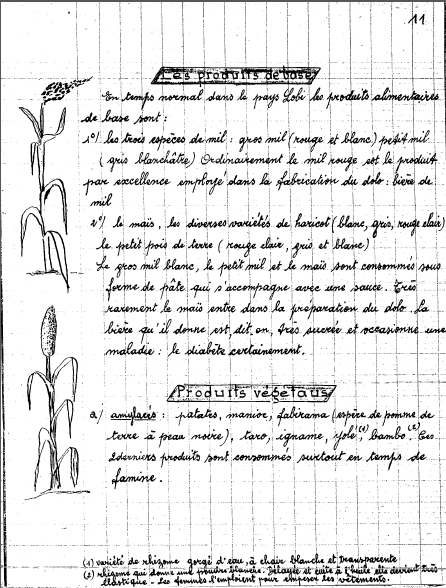 11
Les produits de base
En temps normal dans le pays Lobi les produits alimentaires
de base sont :
1°/ les trois espèces de mil : gros mil (rouge et blanc) petit mil
(gris blanchâtre) Ordinairement le mil rouge est le produit
par excellence employé dans la fabrication du dolo : bière de
mil
2°/ le maïs, les diverses variétés de haricot (blanc, gris, rouge clair)
le petit pois de terre (rouge clair, gris et blanc)
Le gros mil blanc, le petit mil et le maïs sont consommés sous
forme de pâte qui s'accompagne avec une sauce. Très
rarement le maïs entre dans la préparation du dolo. La
bière qu'il donne est, dit-on, très sucrée et occasionne une
maladie : le diabète certainement.
Produits végétaus
a/ amylacés : patates, manioc, fabirama (espèce de pomme de
terre à peau noire), taro, igname, yolé (1), bambo (2). Ces
2 derniers produits sont consommés surtout en temps de
famine.
(1) variété de rhizome gorgé d'eau, à chair blanche et transparente
(2) rhizome qui donne une poudre blanche. Délayée et cuite à l'huile elle devient très
élastique. Les femmes l'emploient pour empeser les vêtements.